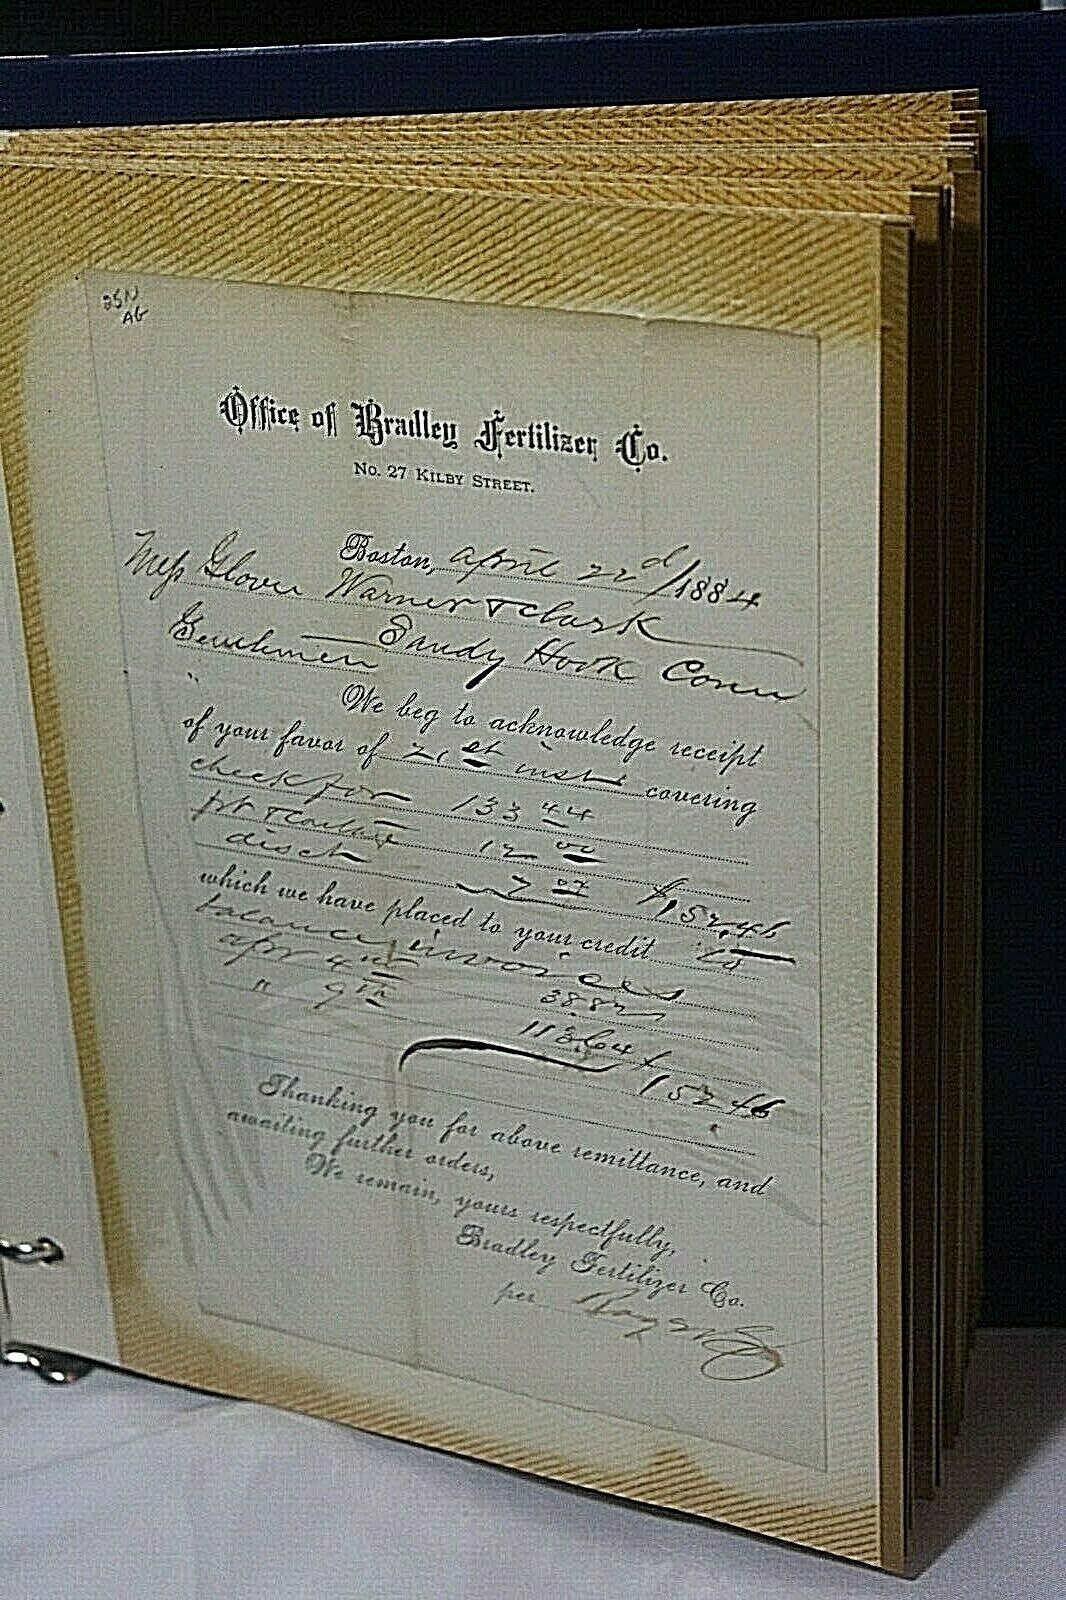 25N
AG
Office of Bradley Fertilizer Co.
No. 27 Kilby Street.
Boston, April 22d / 1884
Mess Glover Warner & Clark
Sandy Hook Conn
Gentlemen
We beg to acknowledge receipt
of your favor of 21st inst covering
check for 133 44
12 00
disct 7 02 $152.46
which we have placed to your credit to
balance invoices
apr 4th 38 82
" 9th 113 64
152 46
Thanking you for above remittance, and
awaiting further orders,
We remain, yours respectfully,
Bradley Fertilizer Co.
per